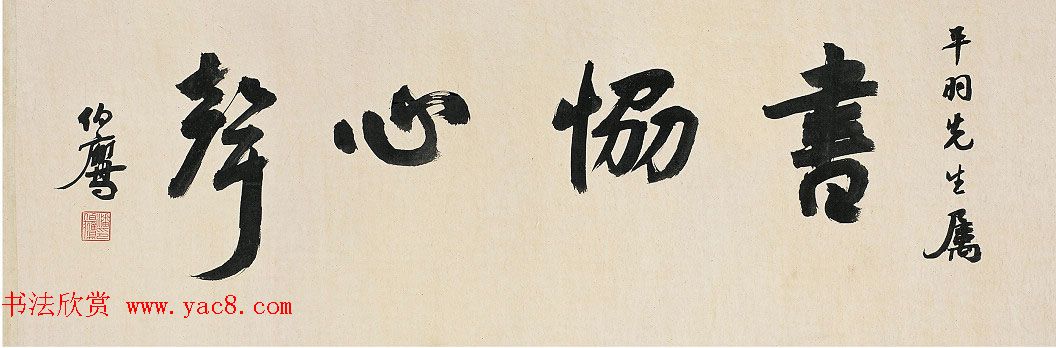 平羽先生属
書恊心聲
伯鷹
书法欣赏 www.yac8.com